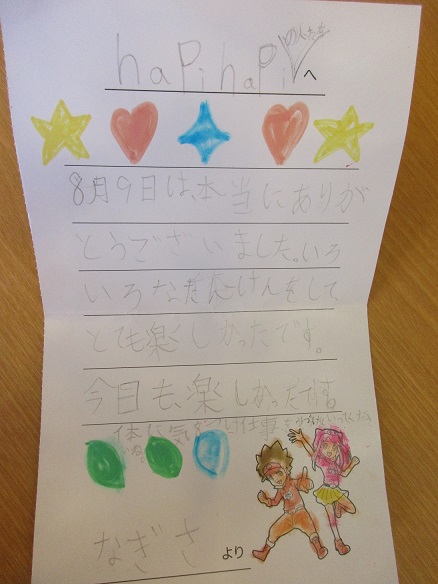 hapihapiの人たち
へ
8月9日は、本当にありが
とうございました。いろ
いろなたいけんをして、
とても楽しかったです。
今日も、楽しかったです
体に気をつけ仕事を
なぎさ より